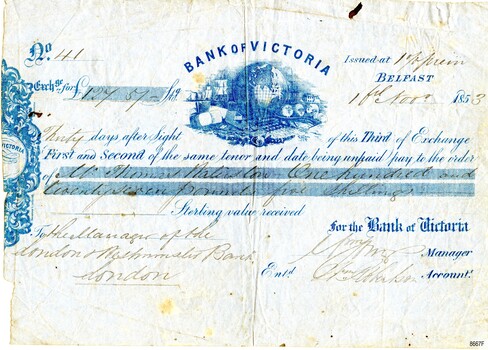 No. 41
BANK OF VICTORIA
Issued at 1 % prem
BELFAST
Exchge for £127.5/- Stg
1st Novr 1853
Thirty days after Sight of this Third of Exchange
First and Second of the same tenor and date being unpaid pay to the order
of Mr Thomas One Hundred and
twenty seven Pounds five Shillings
Sterling value received
For the Bank of Victoria
To the Manager of the
London & Westminster Bank
London
Manager
Entd. Accountt.
VICTORIA
8667F